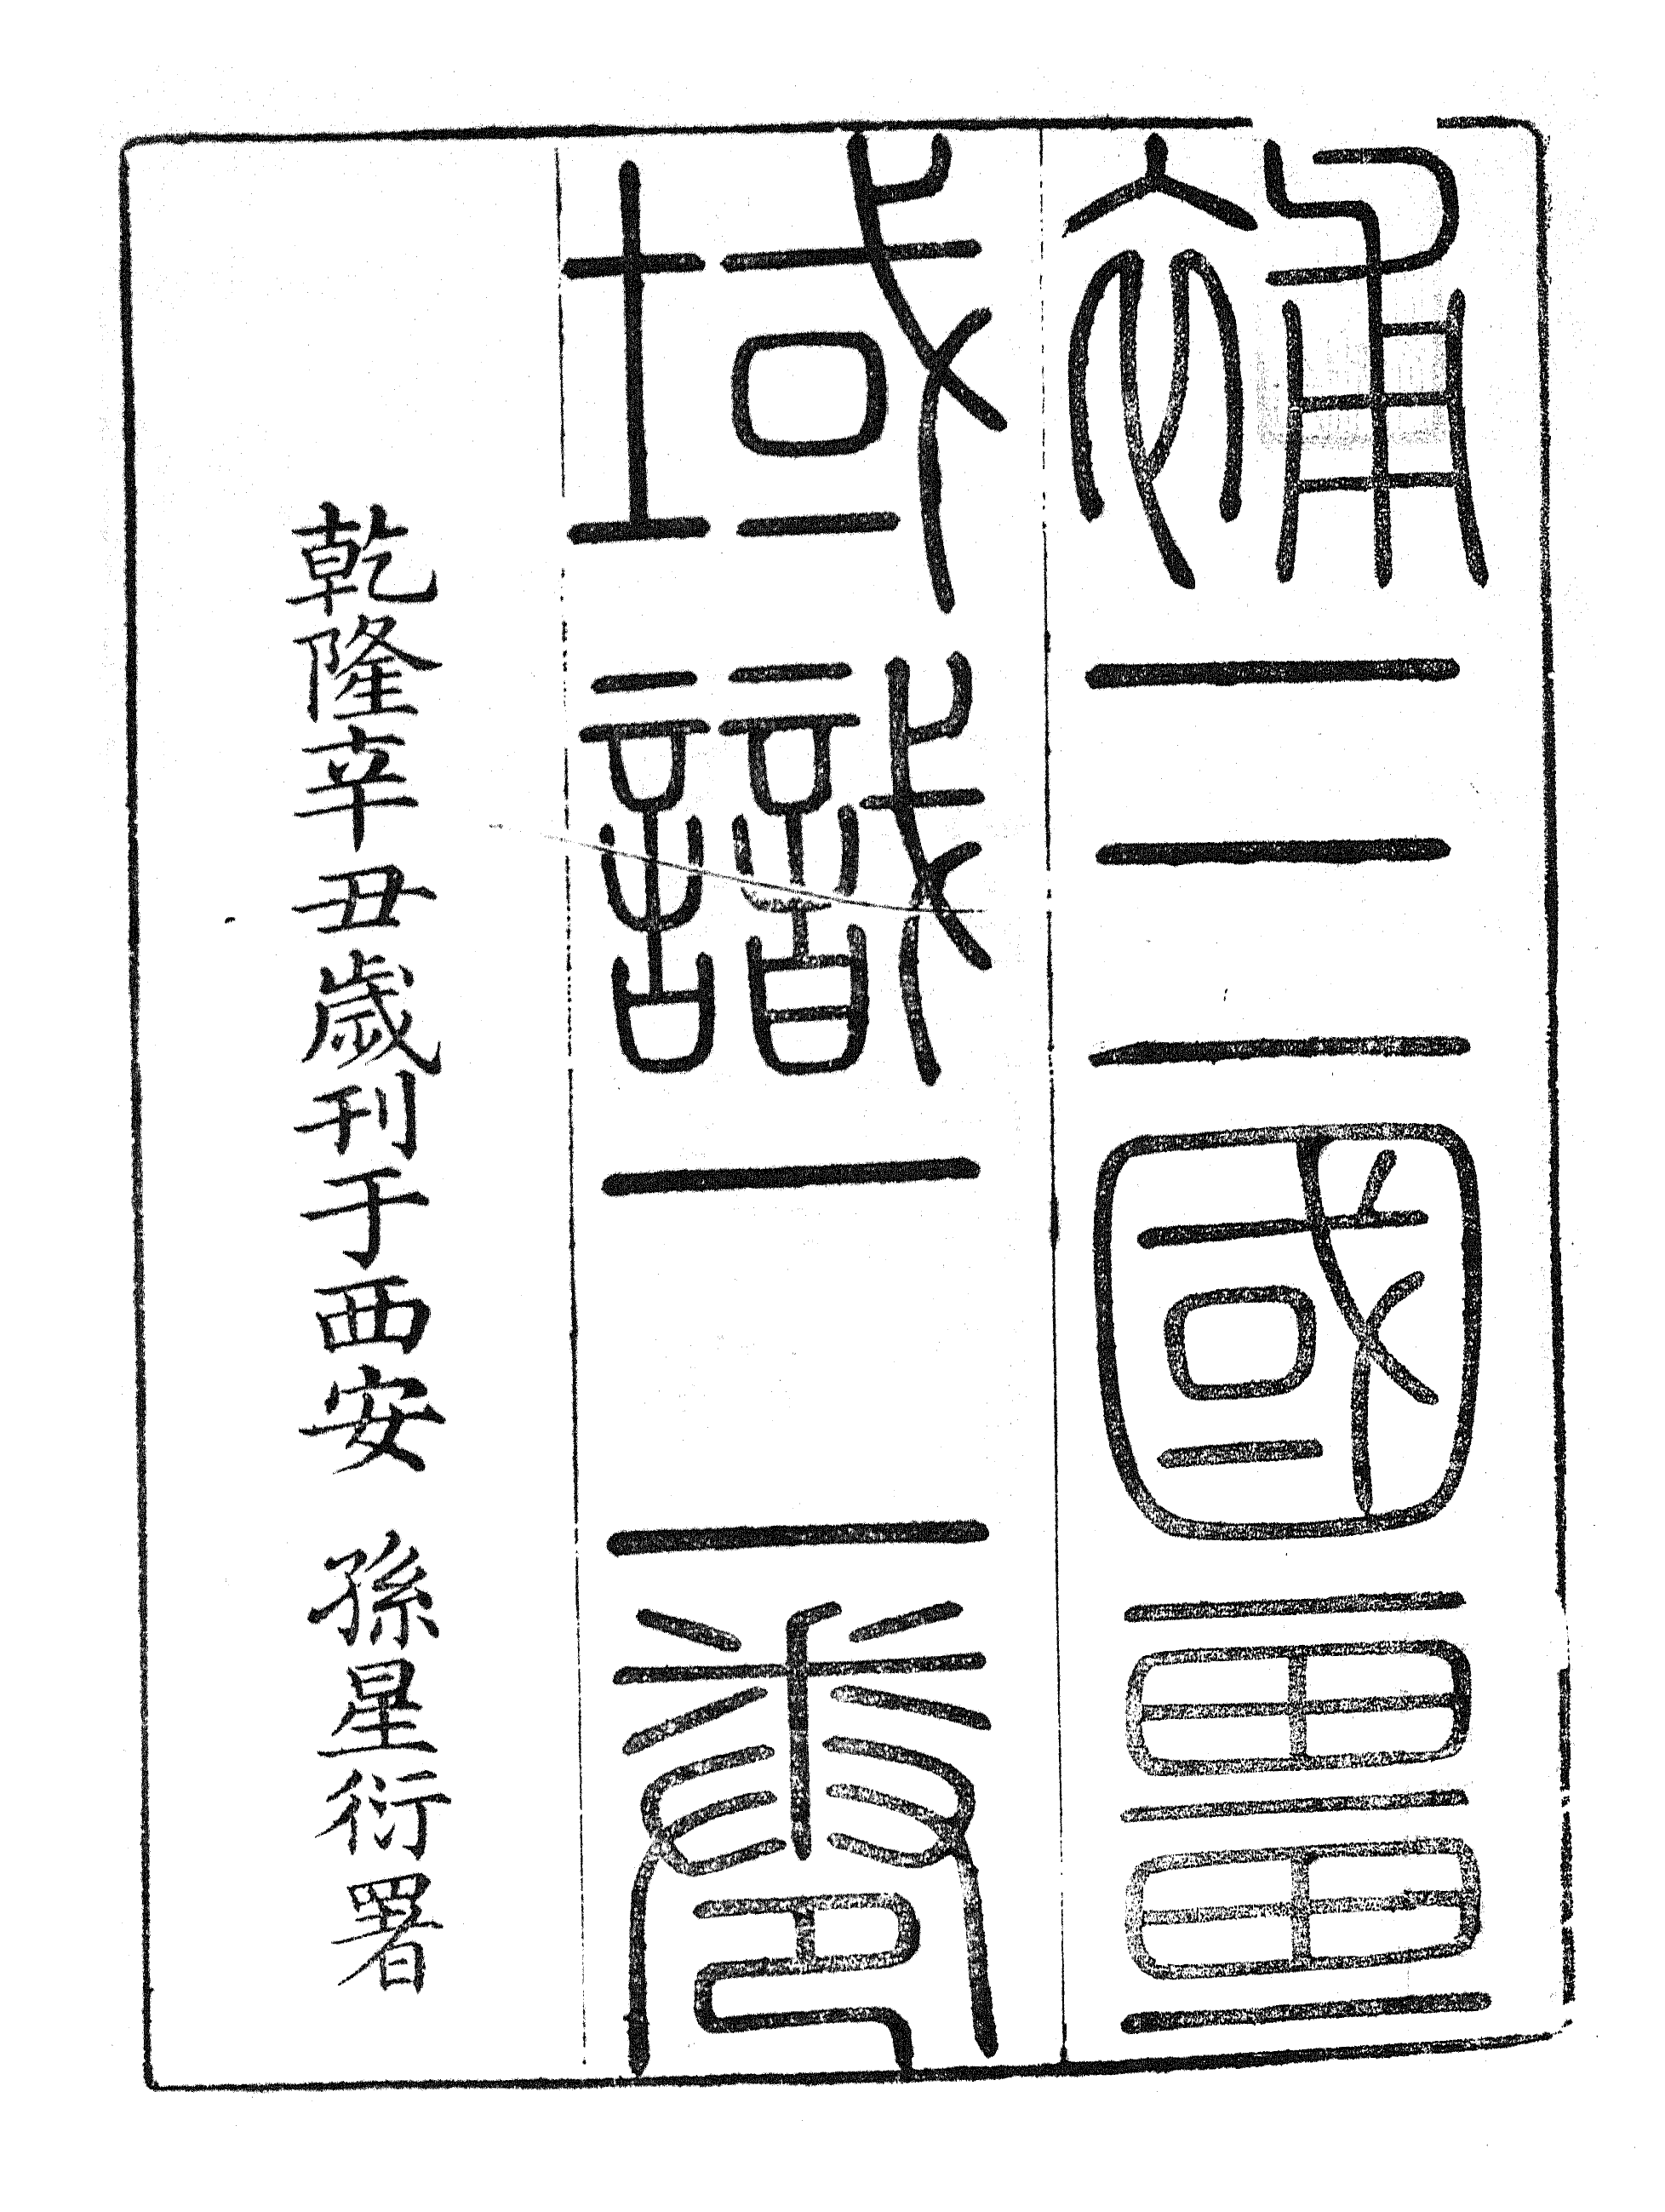 補三國畺
域識二卷
乾隆辛丑歲刊于西安 孫星衍署